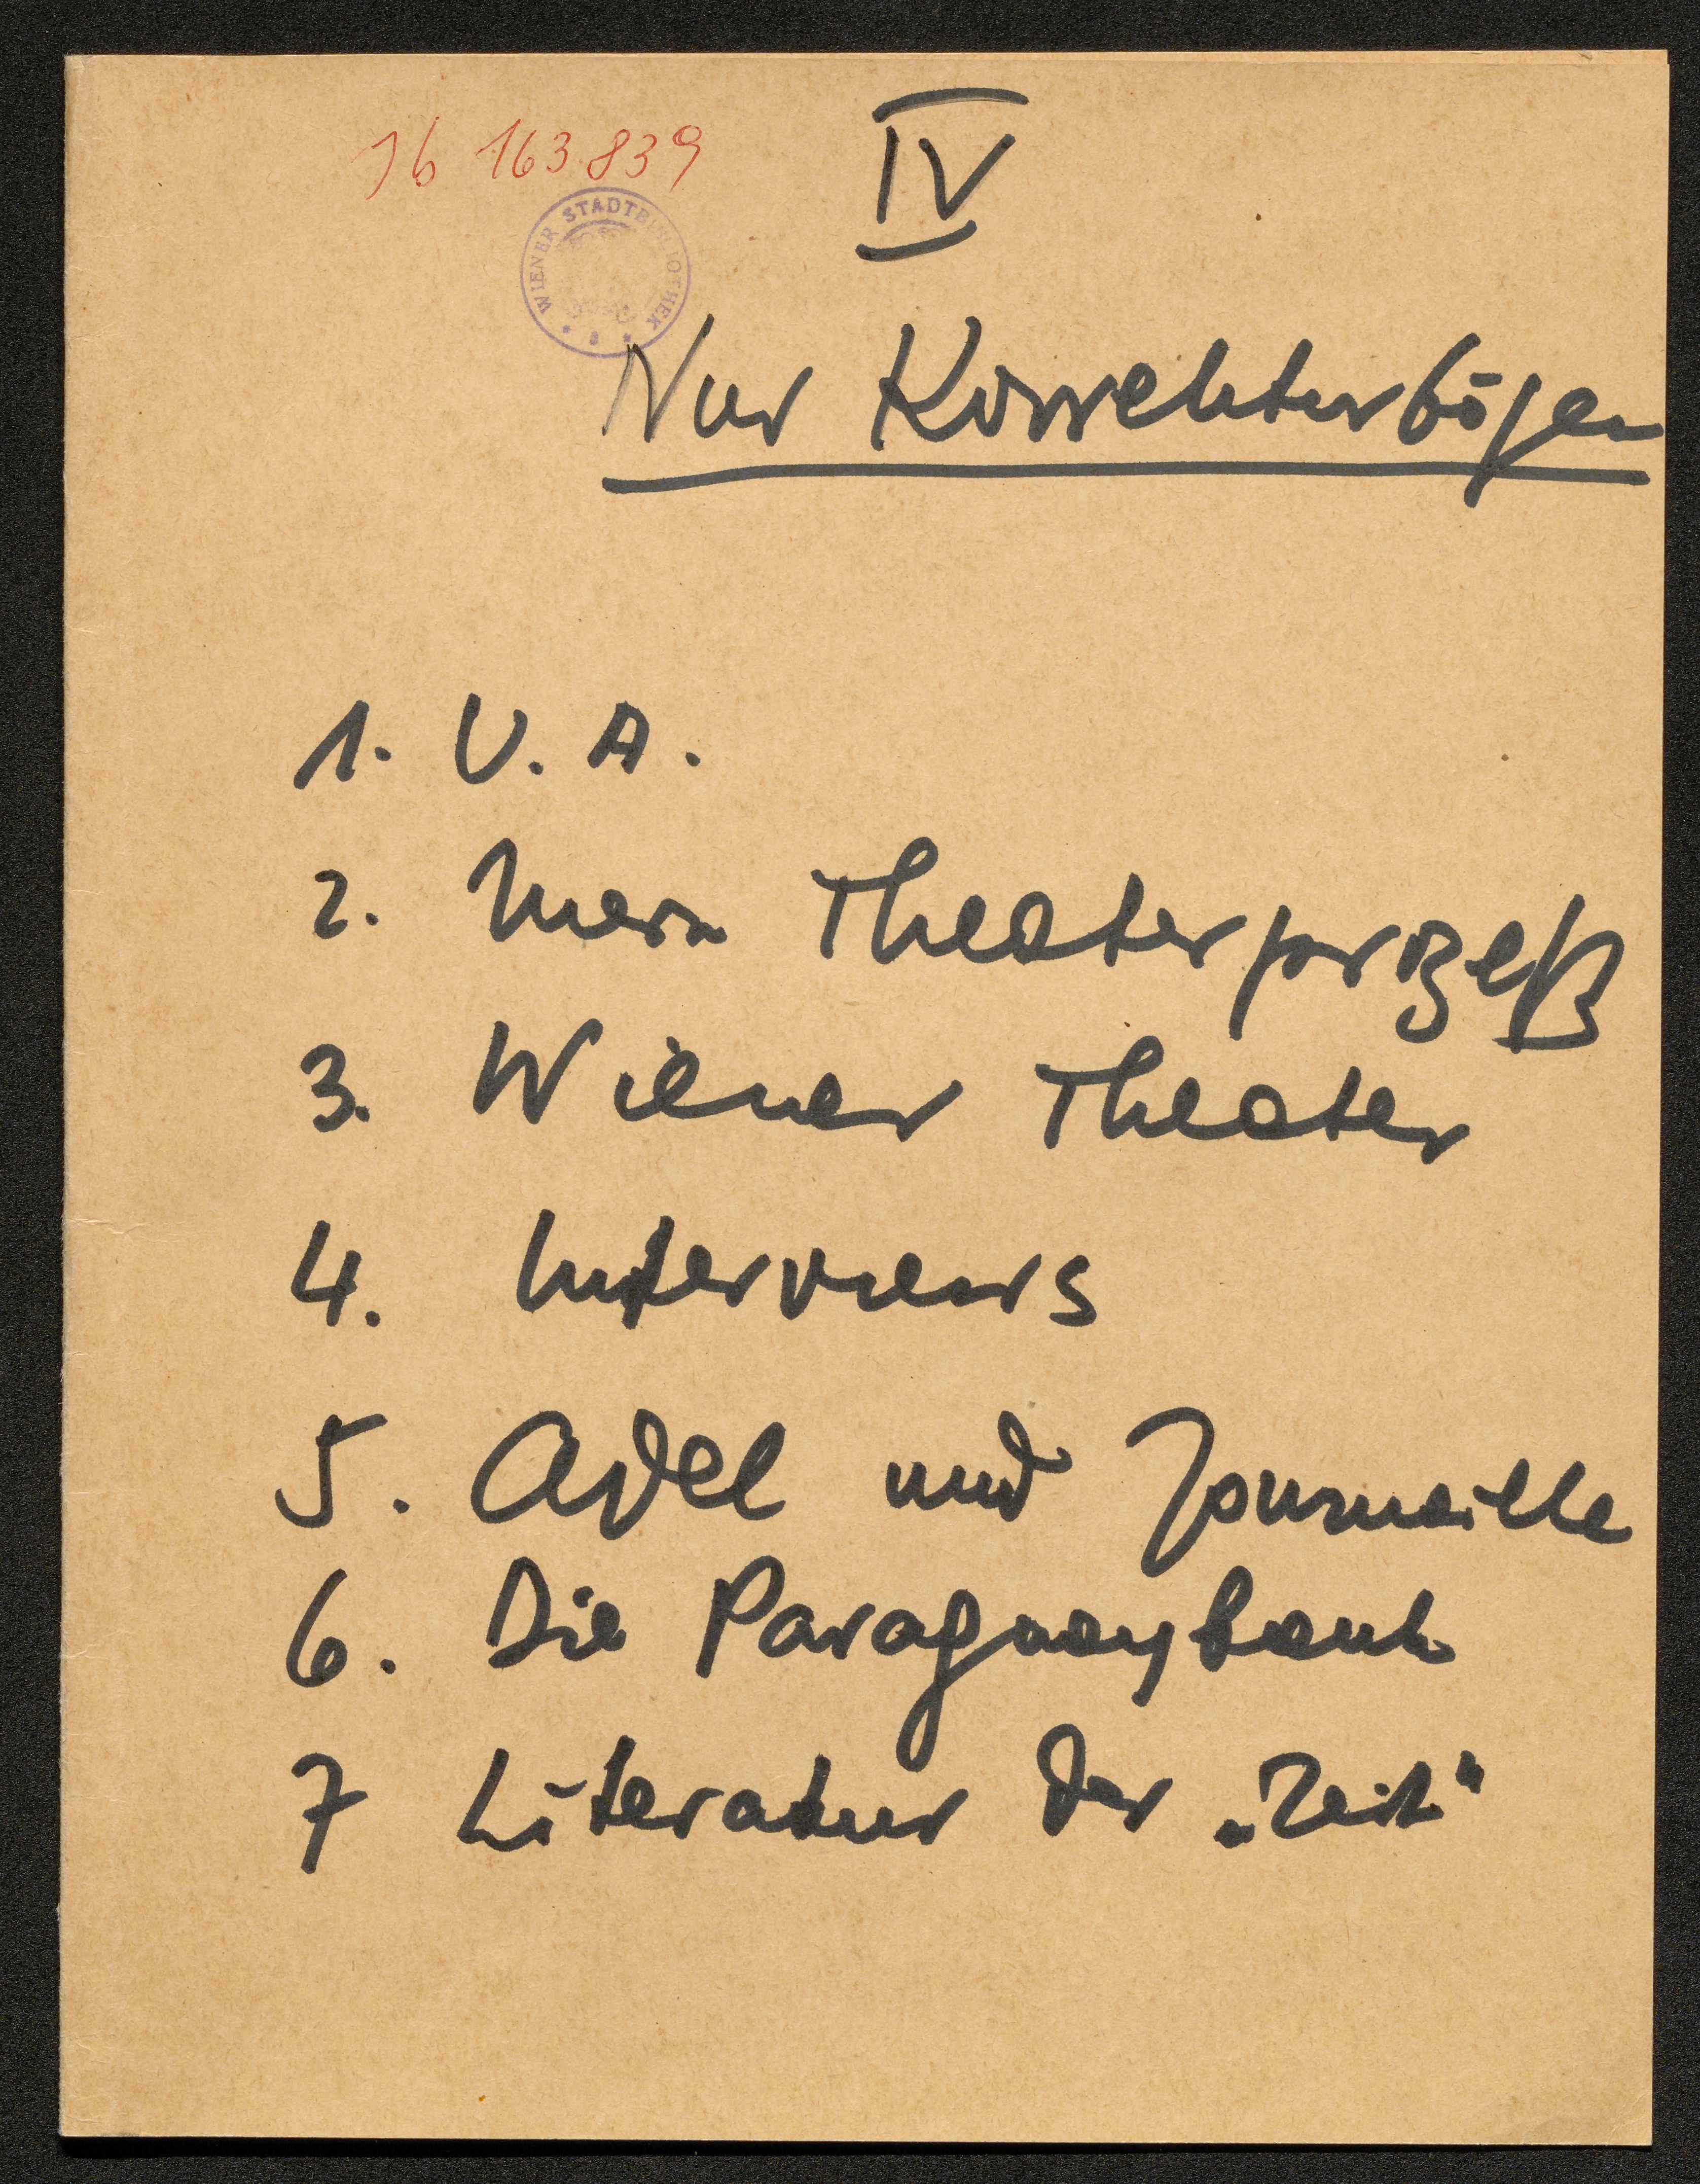 IV
Jb 163.839
WIENER STADTBIBLIOTHEK
Nur Korrekturbögen
1. U. A.
2. Mein Theaterprozeß
3. Wiener Theater
4. Interviews
5. Adel und Journaille
6. Die Paraguaybank
7 Literatur der „Zeit"